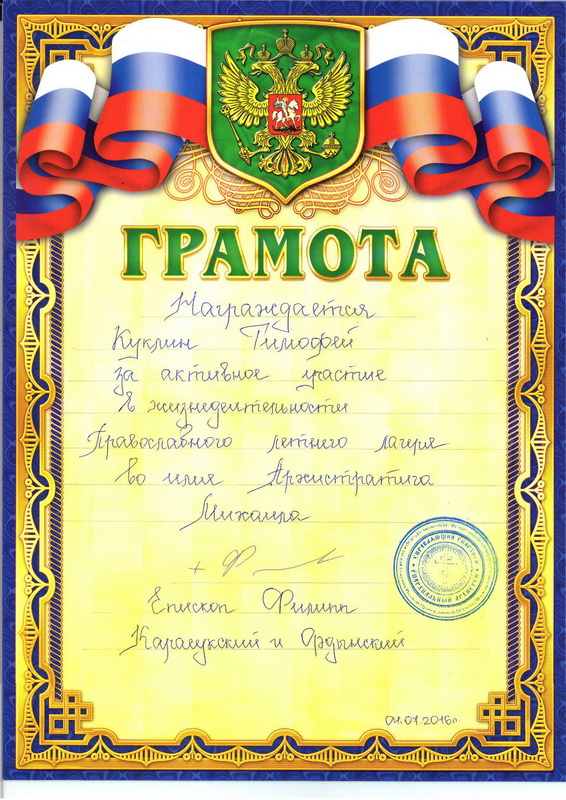 ГРАМОТА
Награждается
Куклин Тимофей
за активное участие
в жизнедеятельности
Православного летнего лагеря
во имя Архистратига
Михаила
Епископ Филипп
Карасукский и Ордынский
04.07.2016г.